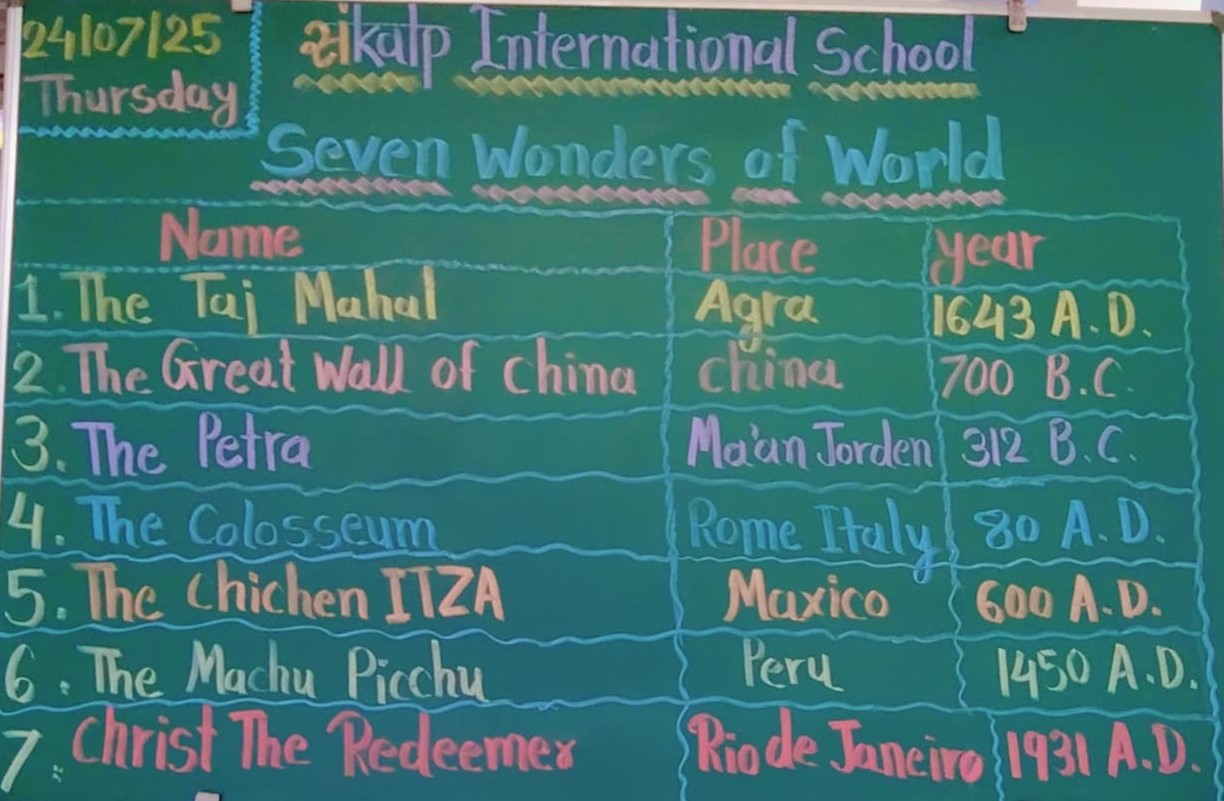 24/07/25
Thursday
સંkalp International School
Seven Wonders of World
Name Place year
1. The Taj Mahal Agra 1643 A.D.
2. The Great Wall of China China 700 B.C.
3. The Petra Ma'an Jorden 312 B.C.
4. The Colosseum Rome Italy 80 A.D.
5. The Chichen ITZA Maxico 600 A.D.
6. The Machu Picchu Peru 1450 A.D.
7. Christ The Redeemer Rio de Janeiro 1931 A.D.